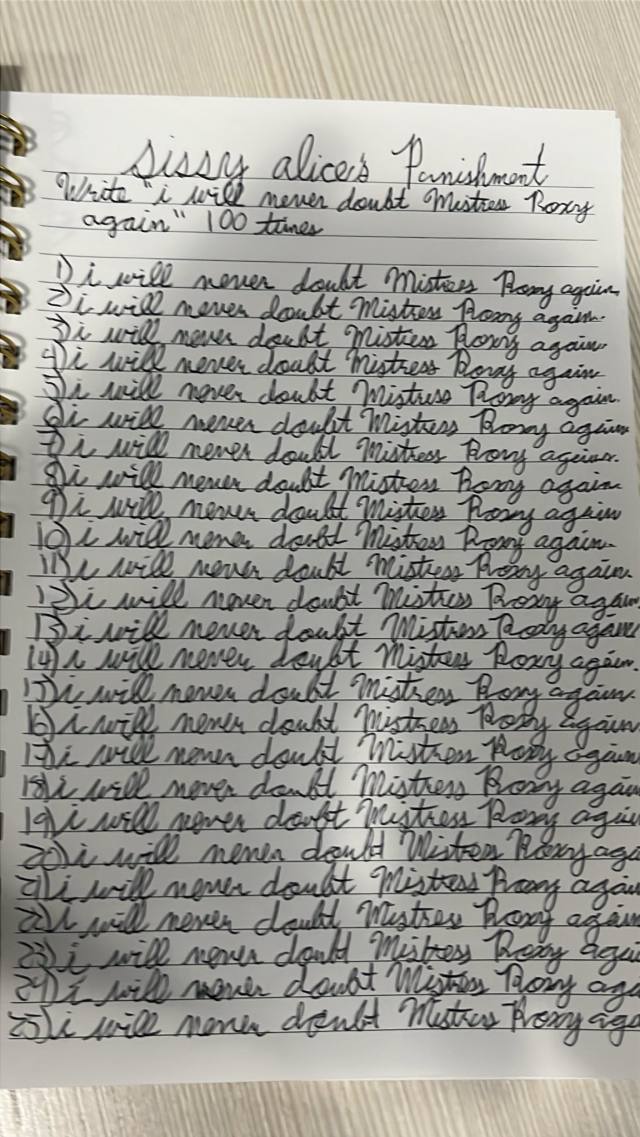 sissy alice's Punishment
Write "i will never doubt Mistress Roxy
again" 100 times
1) i will never doubt Mistress Roxy again.
2) i will never doubt Mistress Roxy again.
3) i will never doubt Mistress Roxy again.
4) i will never doubt Mistress Roxy again.
5) i will never doubt Mistress Roxy again.
6) i will never doubt Mistress Roxy again.
7) i will never doubt Mistress Roxy again.
8) i will never doubt Mistress Roxy again.
9) i will never doubt Mistress Roxy again
10) i will never doubt Mistress Roxy again.
11) i will never doubt Mistress Roxy again.
12) i will never doubt Mistress Roxy again.
13) i will never doubt Mistress Roxy again
14) i will never doubt Mistress Roxy again.
15) i will never doubt Mistress Roxy again.
16) i will never doubt Mistress Roxy again
17) i will never doubt Mistress Roxy again
18) i will never doubt Mistress Roxy again
19) i will never doubt Mistress Roxy agai
20) i will never doubt Mistress Roxy aga
21) i will never doubt Mistress Roxy again
22) i will never doubt Mistress Roxy again
23) i will never doubt Mistress Roxy agai
24) i will never doubt Mistress Roxy aga
25) i will never doubt Mistress Roxy aga